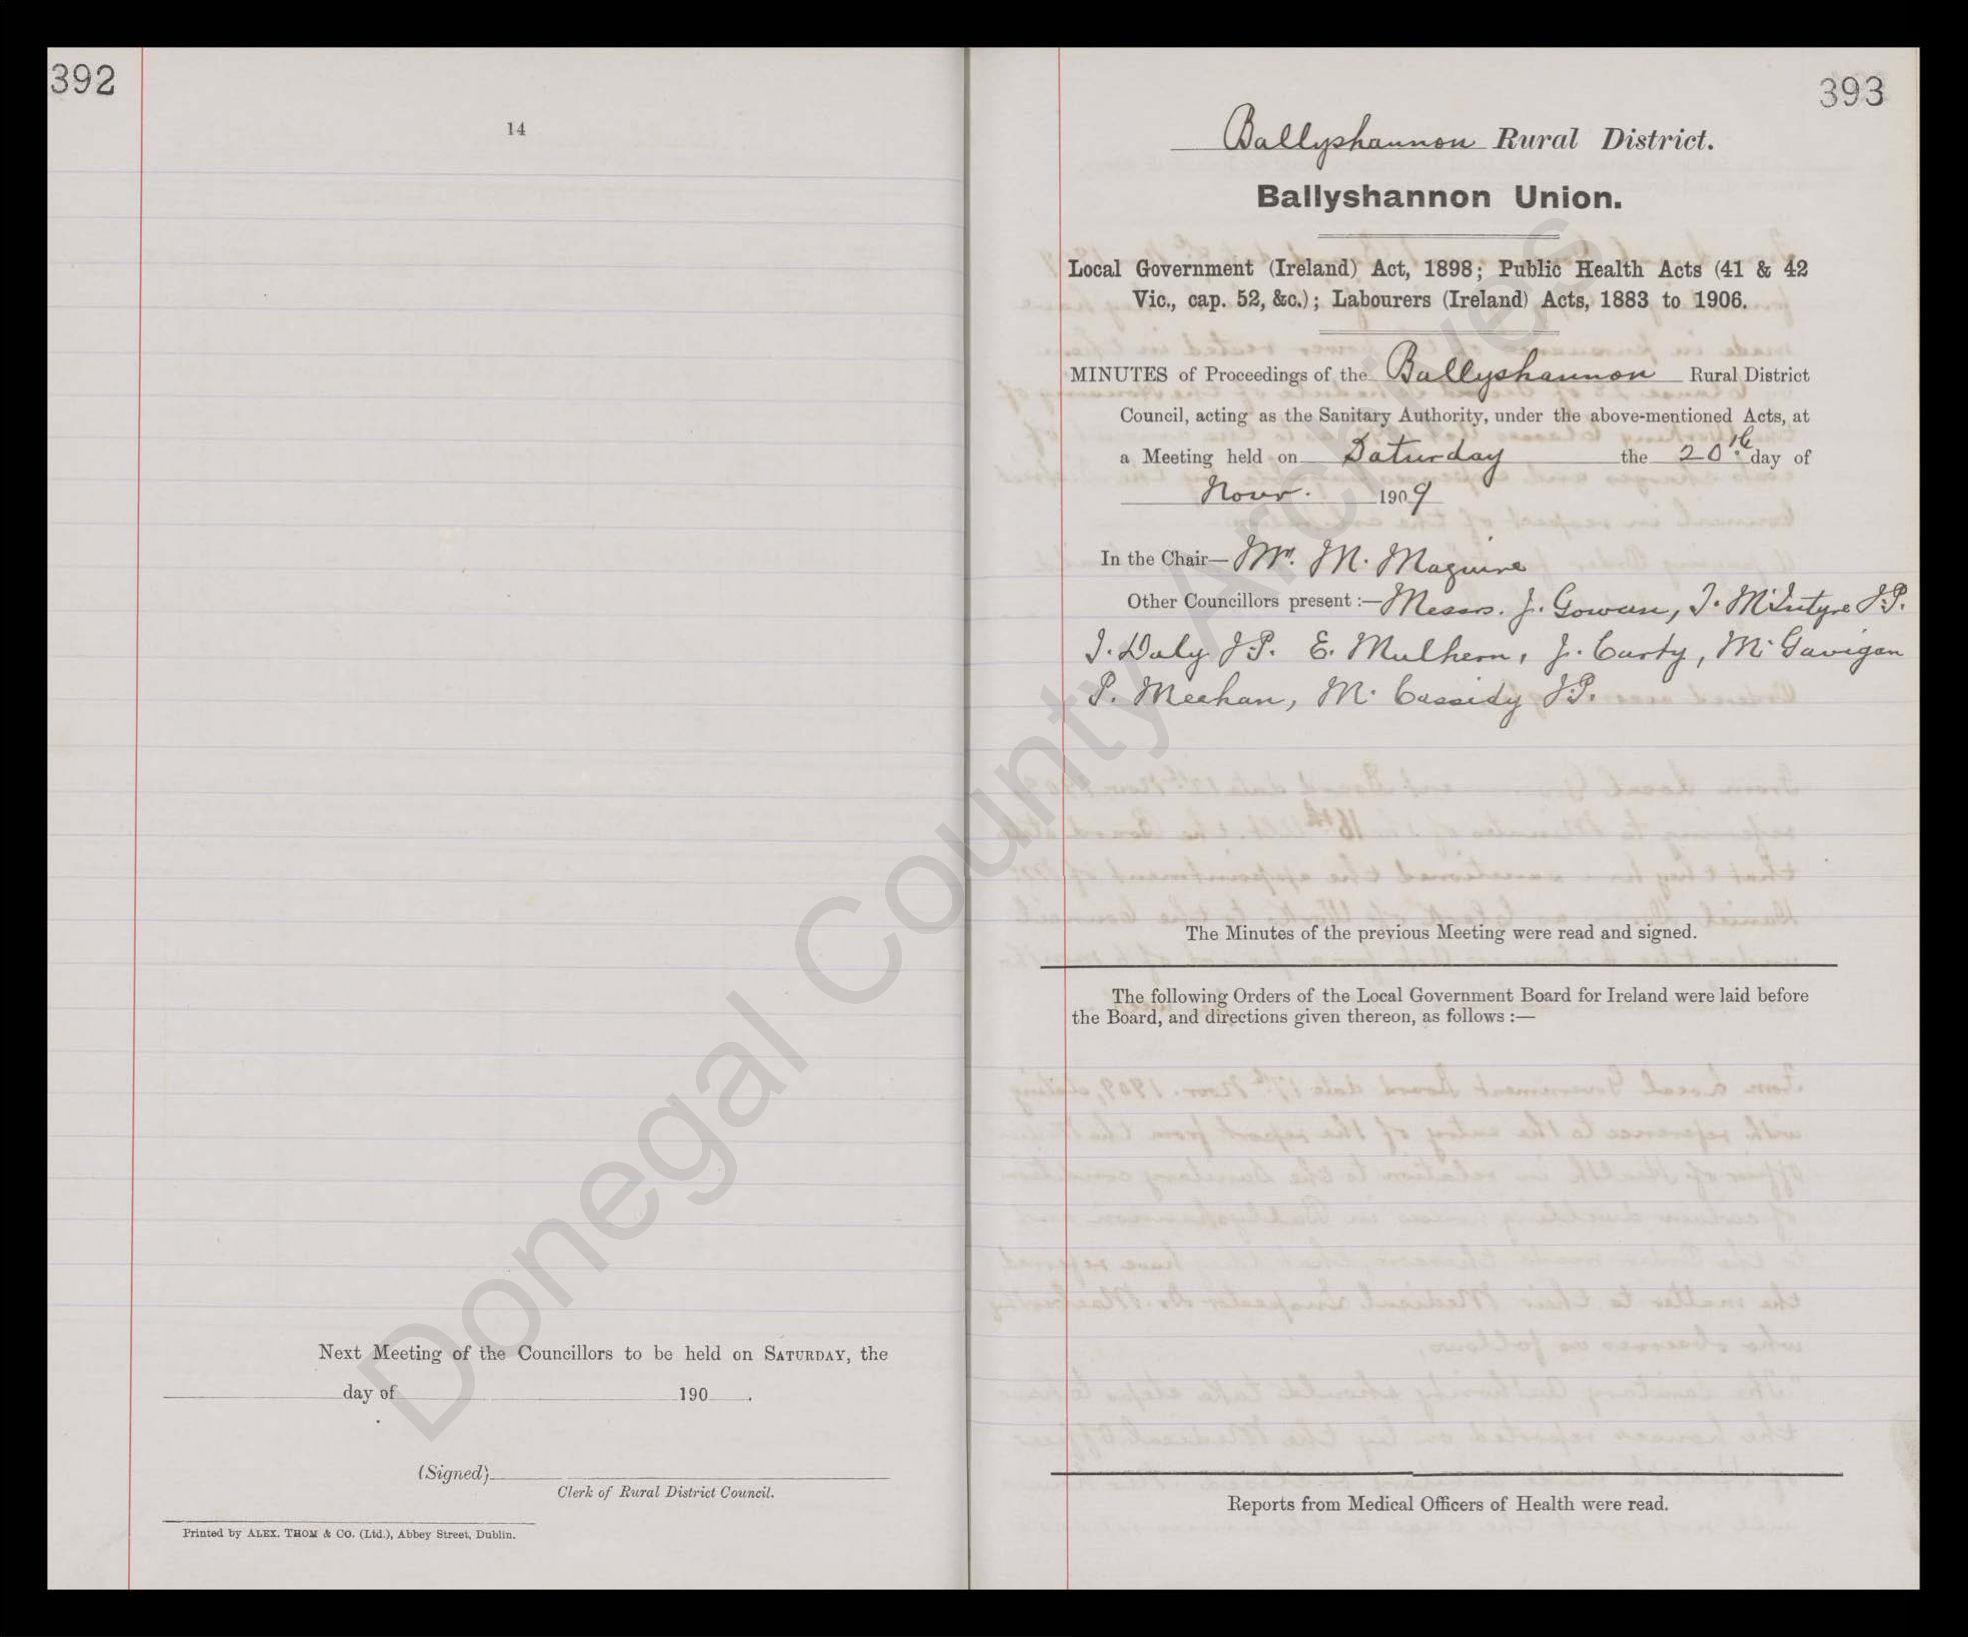 392
14
Next Meeting of the Councillors to be held on SATURDAY, the
day of 190 .
(Signed)
Clerk of Rural District Council.
Printed by ALEX. THOM & CO. (Ltd.), Abbey Street, Dublin.
393
Ballyshannon Rural District.
Ballyshannon Union.
Local Government (Ireland) Act, 1898; Public Health Acts (41 & 42
Vic., cap. 52, &c.); Labourers (Ireland) Acts, 1883 to 1906.
MINUTES of Proceedings of the Ballyshannon Rural District
Council, acting as the Sanitary Authority, under the above-mentioned Acts, at
a Meeting held on Saturday the 20th day of
Novr. 1909
In the Chair—Mr. M. Maguire
Other Councillors present :—Messrs. J. Gowan, T. McIntyre J.P.
J. Daly J.P. E. Mulhern, J. Carty, M. Gavigan
P. Meehan, M. Cassidy J.P.
The Minutes of the previous Meeting were read and signed.
The following Orders of the Local Government Board for Ireland were laid before
the Board, and directions given thereon, as follows :—
Reports from Medical Officers of Health were read.
Donegal County Archives